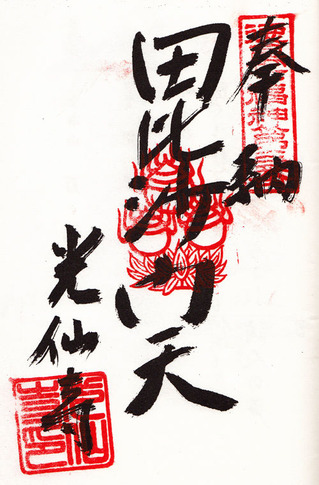 奉納
毘沙門天
光仙寺